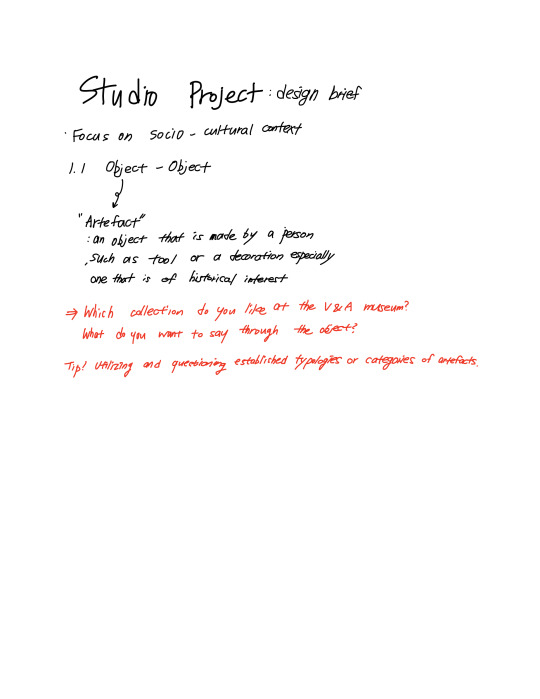 Studio Project : design brief
· Focus on socio - cultural context
1.1 Object - Object
"Artefact"
: an object that is made by a person
, such as tool or a decoration especially
one that is of historical interest
⇒ Which collection do you like at the V&A museum?
What do you want to say through the object?
Tip! Utilizing and questioning established typologies or categories of artefacts.